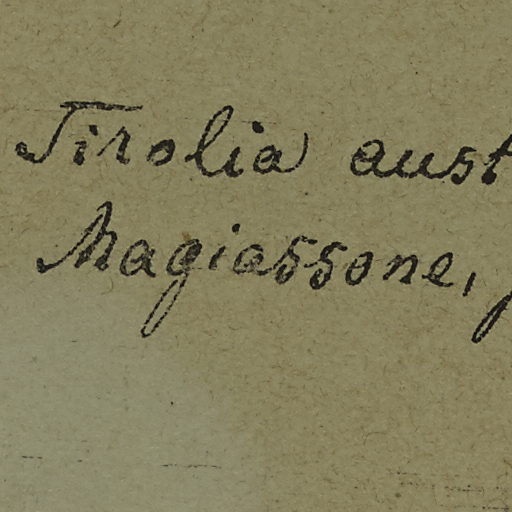 Tirolia aust
Magiassone,